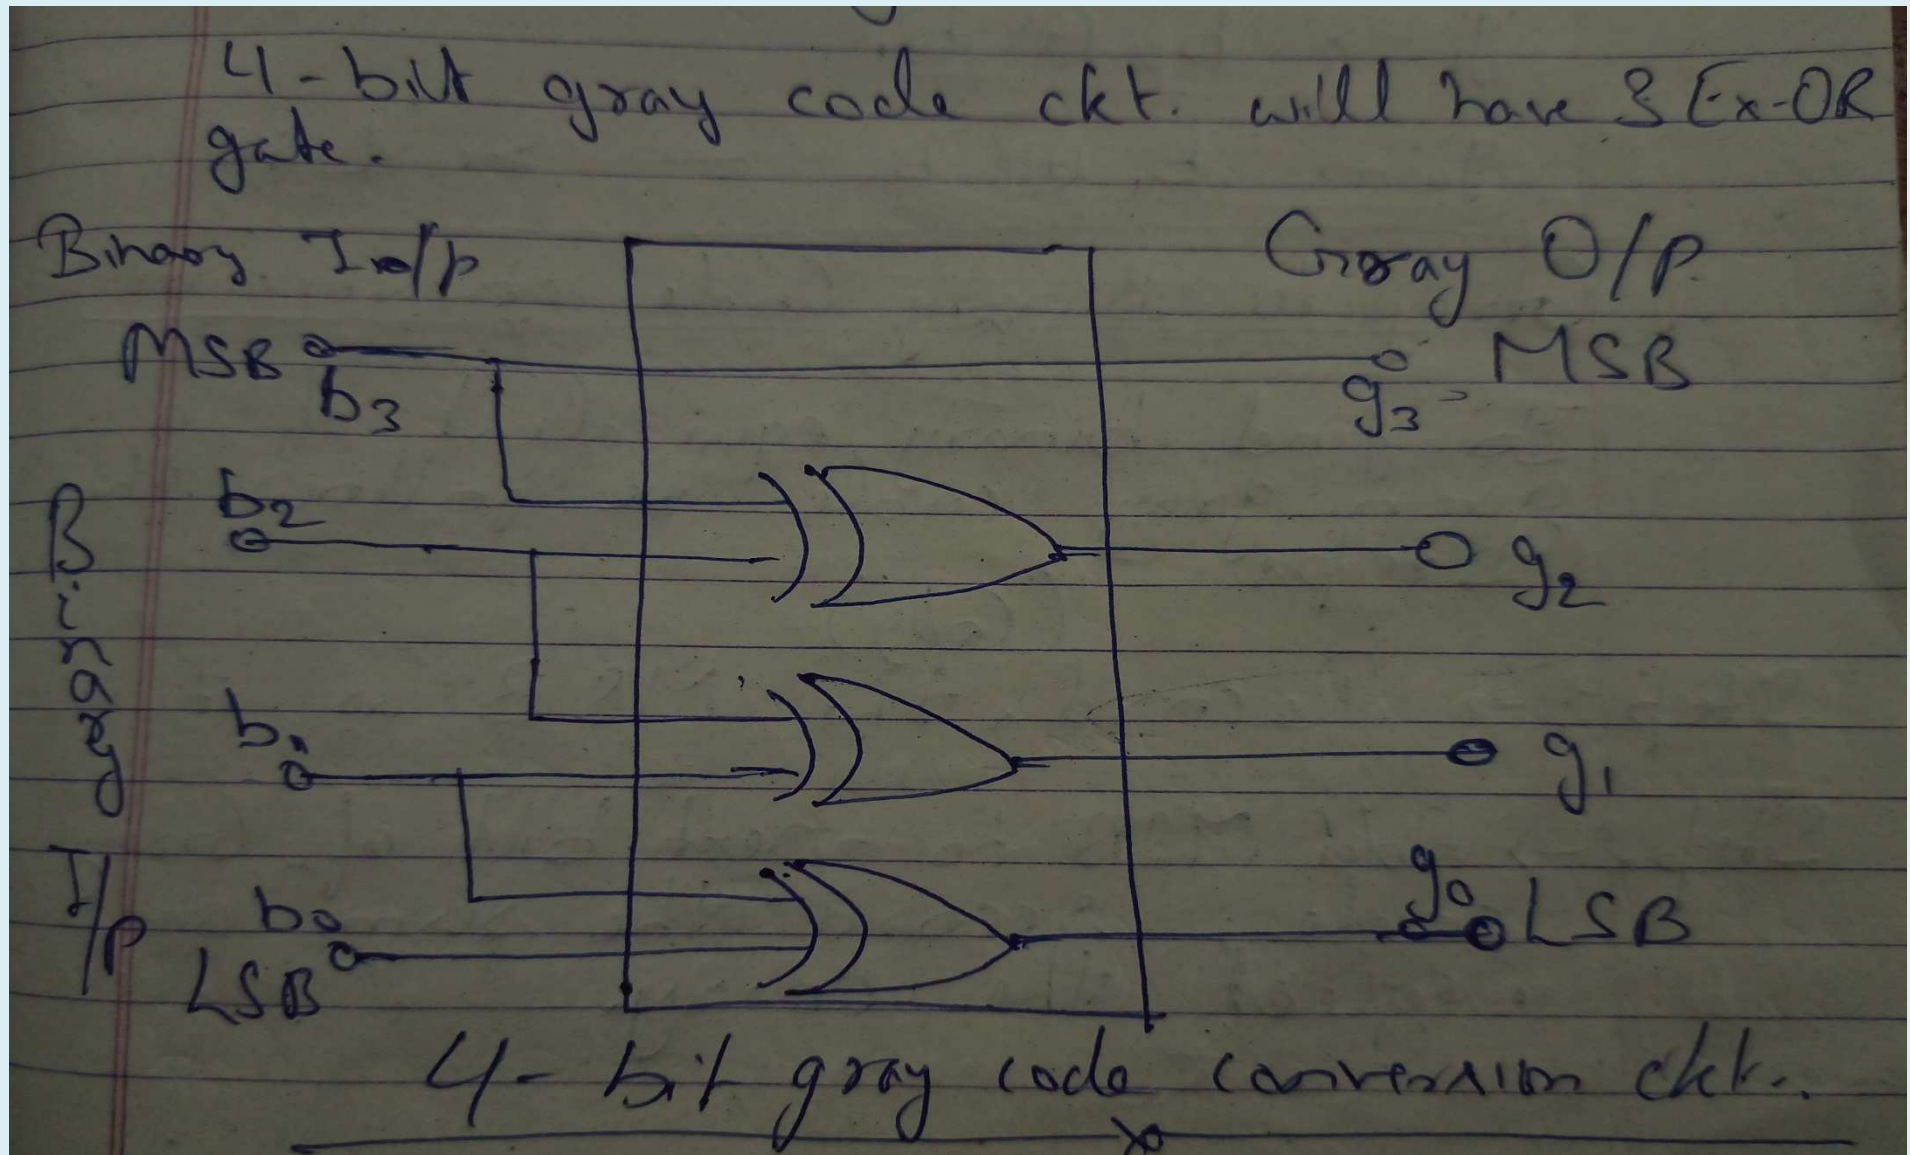 4-bit gray code ckt. will have 3 Ex-OR
gate.
Binary I/p
Gray O/P
MSB
b3
g3 - MSB
b2
g2
Binary I/p
b1
g1
b0
LSB
g0 LSB
4-bit gray code conversion ckt.